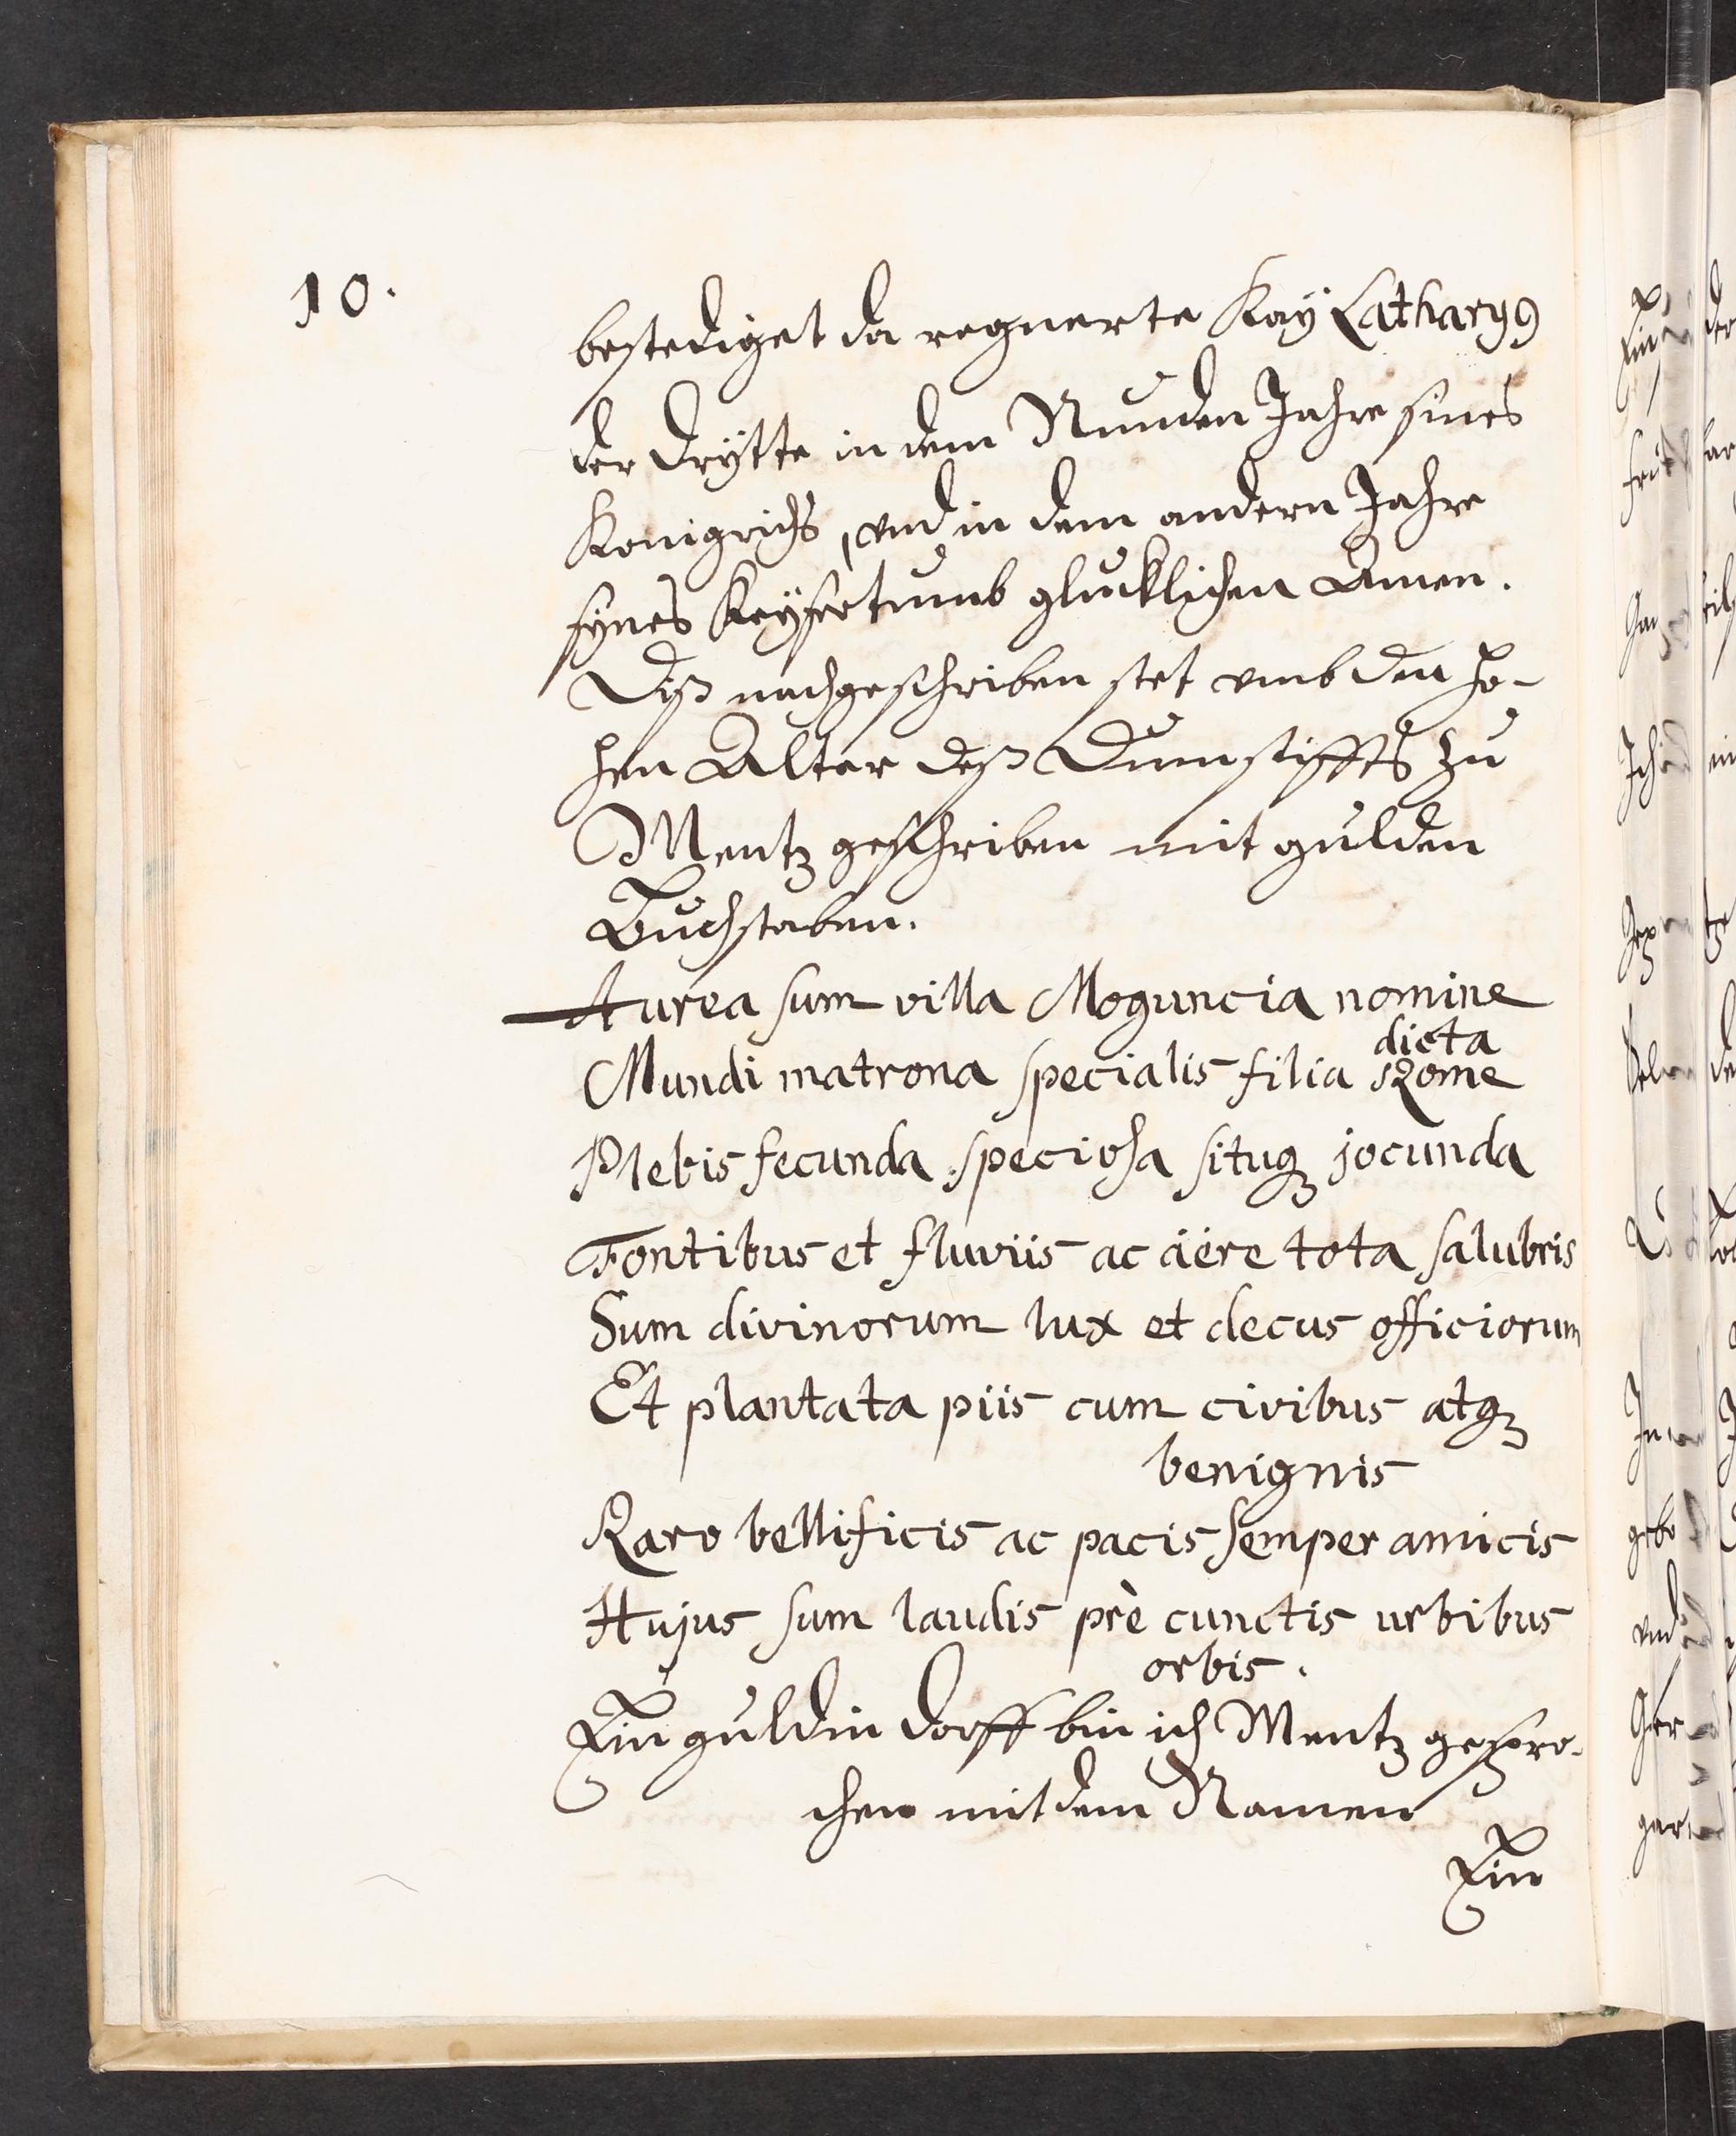 10.
bestediget da regnerte Kay Lathary9
der drytte in dem Nunden Jahre sines
Konigrichs, vnd in dem andern Jahre
synes Keysertumb glucklichen Amen.
Diß nachgeschriben stet vmb den ho-
hen Alter deß Dumstiffts zu
Mentz geschriben mit gulden
Buchstaben.
Aurea sum villa Moguncia nomine
dicta
Mundi matrona specialis filia Rome
Plebis fecunda speciosa situq; jocunda
Fontibus et fluviis ac aëre tota salubris
Sum divinorum lux et decus officiorum
Et plantata piis cum civibus atq;
benignis
Raro bellificis ac pacis semper amicis
Hujus sum laudis prè cunctis urbibus
orbis.
Ein guldin dorff bin ich Mentz gespro-
chen mit dem Namen
Ein